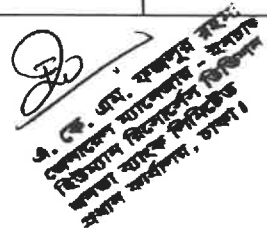 এ. কে. এম. ফজলুর রহমান
জেনারেল ম্যানেজার - ইনচার্জ
হিউম্যান রিসোর্সেস ডিভিশন
জনতা ব্যাংক লিমিটেড
প্রধান কার্যালয়, ঢাকা।